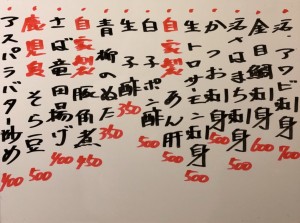 活アワビ刺身 700
金目鯛刺身 600
活さば刺身 500
かつお刺身 500
生トロサーモン刺身 500
自家製あん肝 500
生子酢
白子ポン酢 500
青柳のぬた 350
自家製豚角煮 450
さば竜田揚げ 400
鹿児島そら豆 500
アスパラバター炒め 400